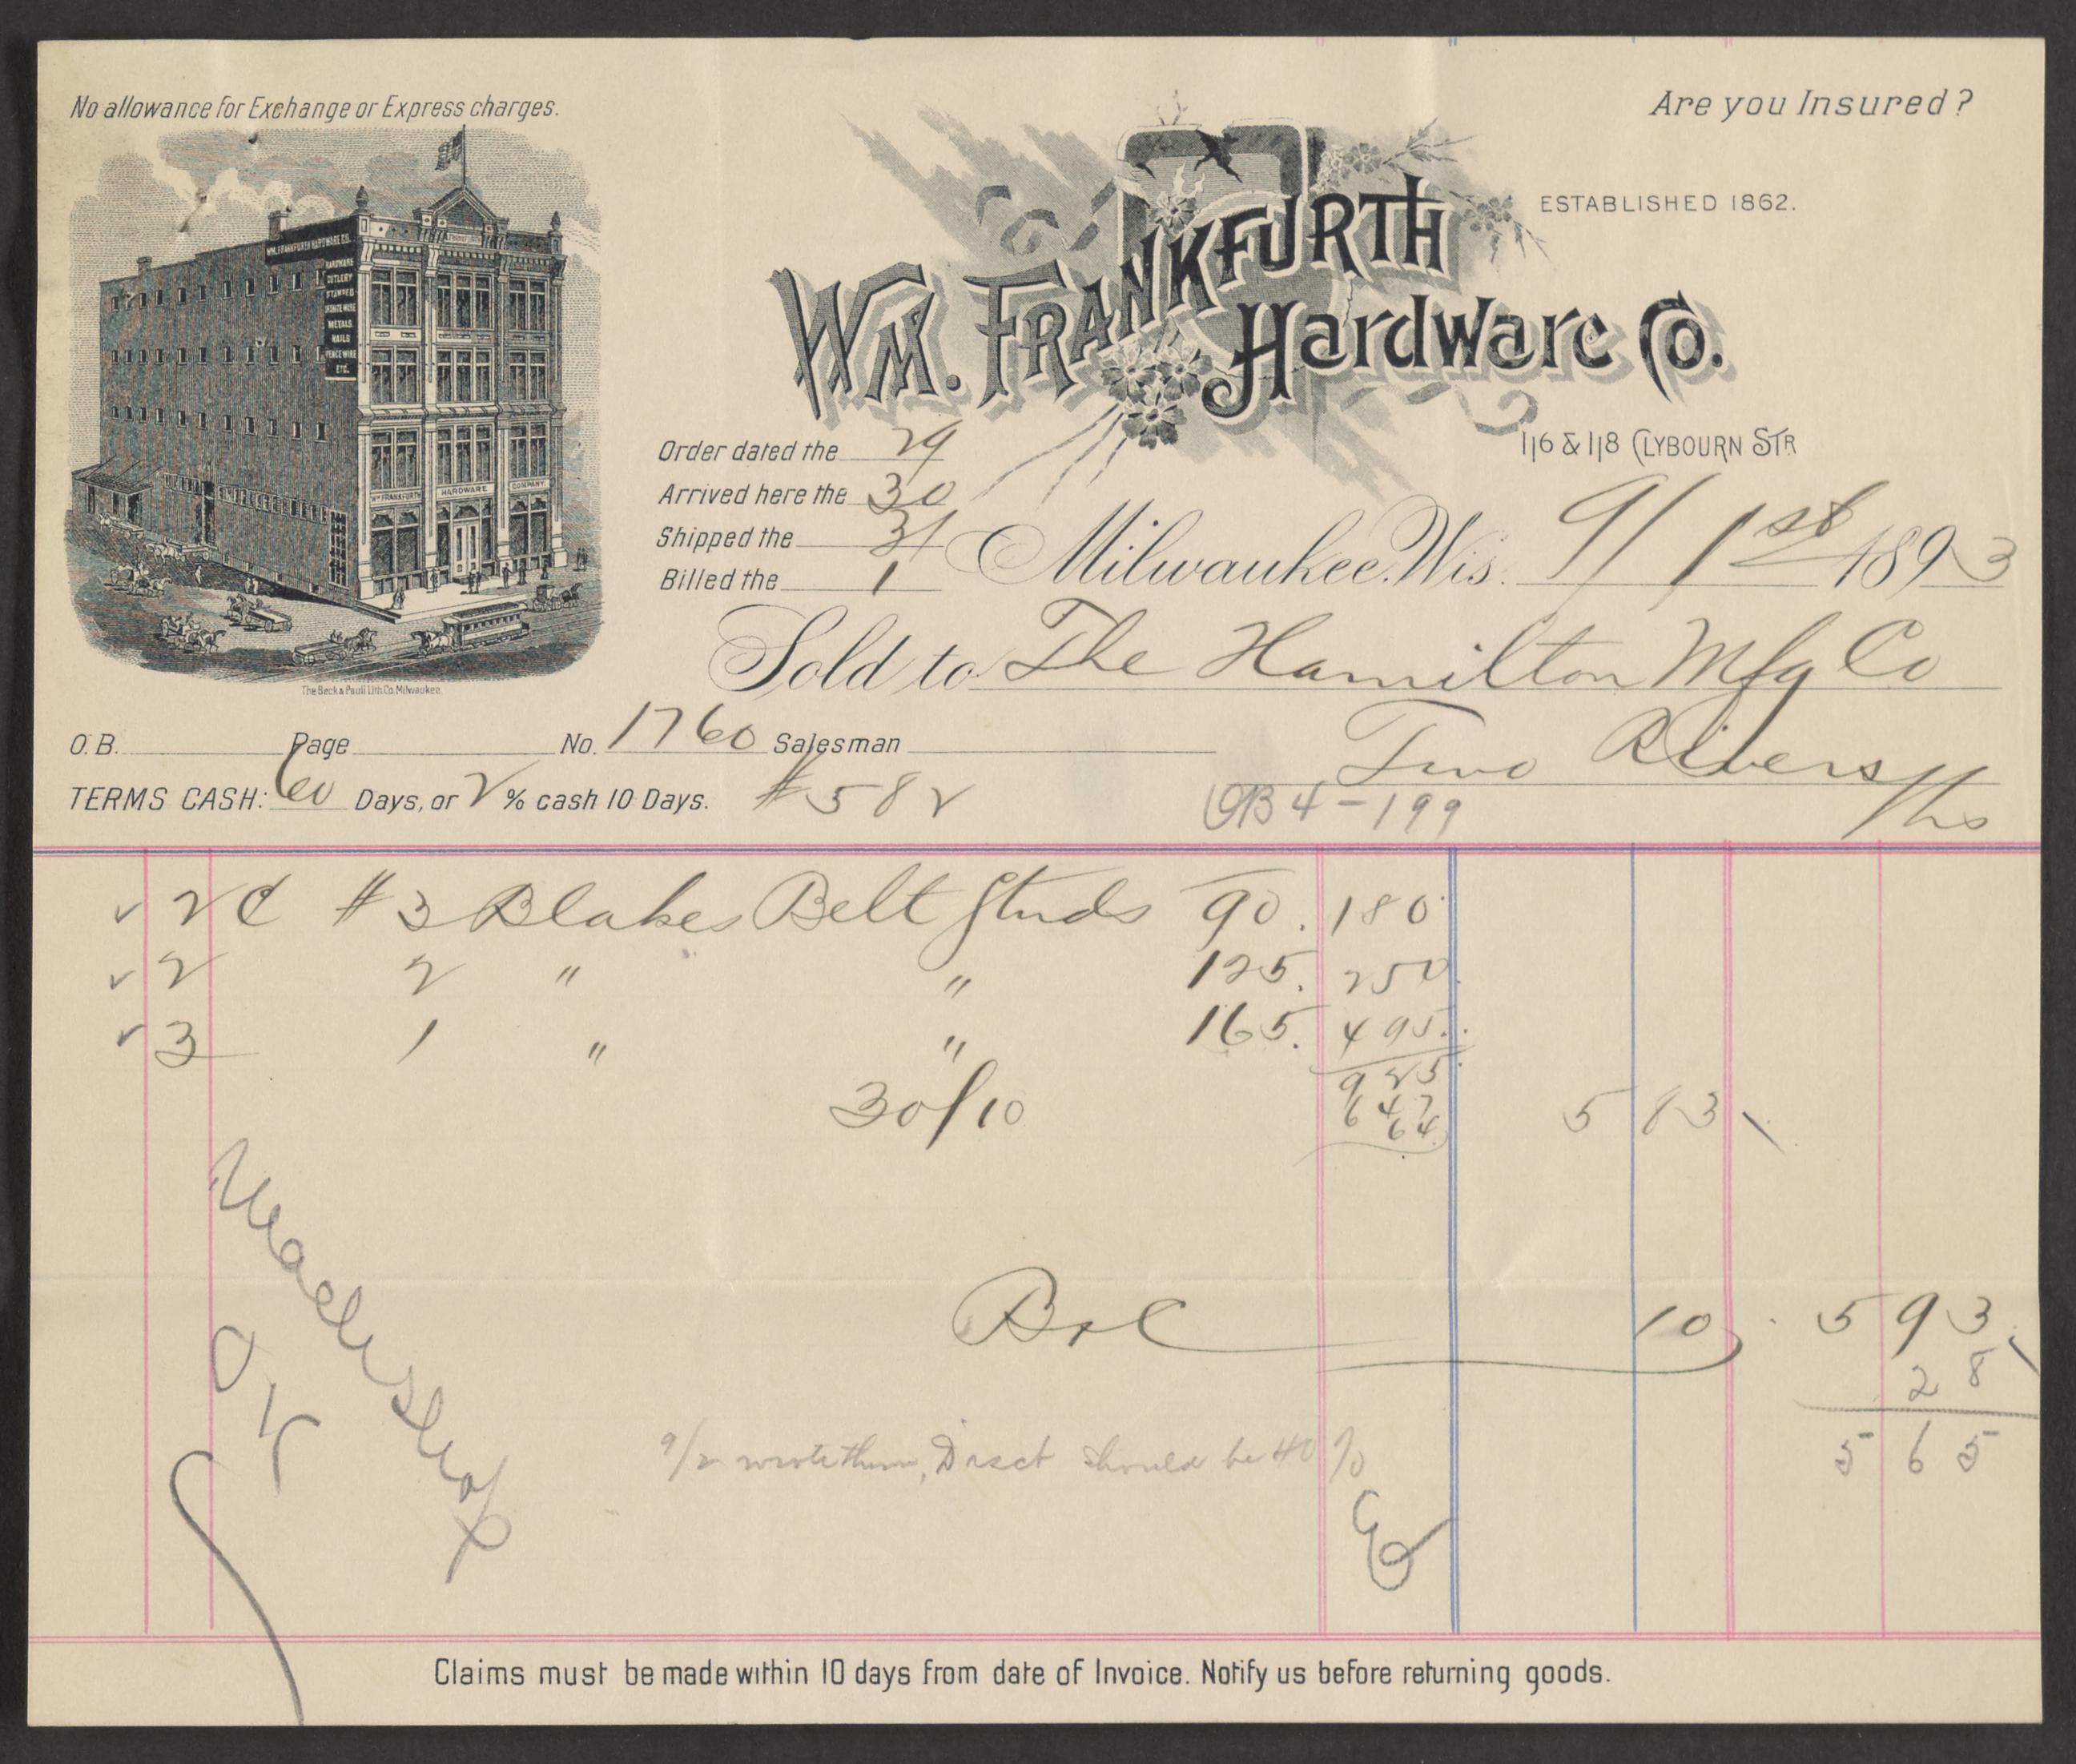 No allowance for Exchange or Express charges.
Are you Insured?
ESTABLISHED 1862.
WM. FRANKFURTH
Hardware Co.
116 & 118 CLYBOURN STR
WM. FRANKFURTH HARDWARE CO.
HARDWARE
CUTLERY
METALS
NAILS
FENCE WIRE
ETC.
WM FRANKFURTH HARDWARE COMPANY
The Beck & Pauli Lith Co. Milwaukee.
Order dated the 29
Arrived here the 30
Shipped the 31
Billed the 1
Milwaukee, Wis. 9/1st 1893
Sold to The Hamilton Mfg Co
Two Rivers
O.B. Page No. 1760 Salesman
TERMS CASH: 60 Days, or 2 % cash 10 Days. #582
OB 4-199
✓ 2 ¢ #3 Blakes Belt Studs 90. 180
✓ 2 2 " " 125. 250
✓ 3 1 " " 165. 495
925
30/10 647 583
64
Box 10 593
28
565
9/2 wrote them, Disct should be 40 %
OK
Claims must be made within 10 days from date of Invoice. Notify us before returning goods.